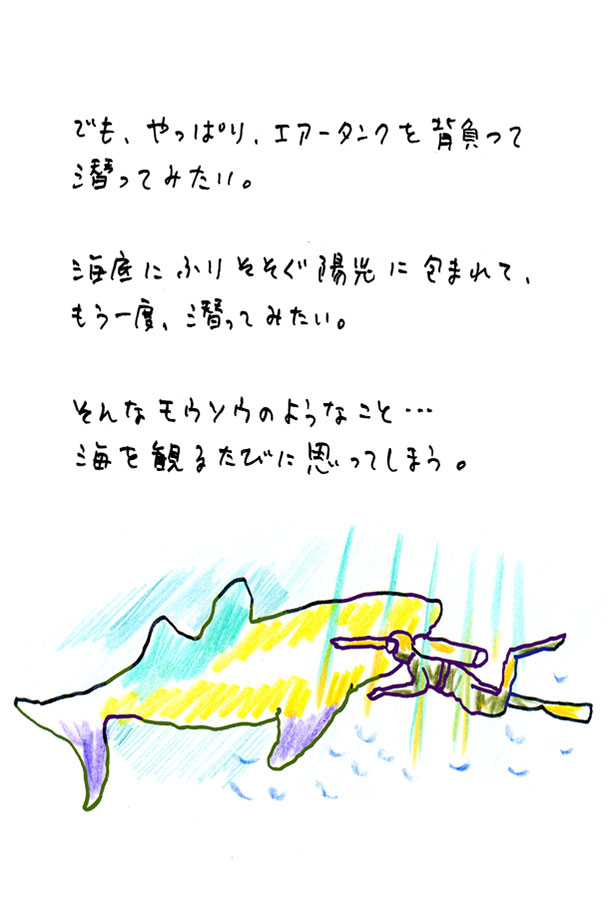 でも、やっぱり、エアータンクを背負って
潜ってみたい。
海底にふりそそぐ陽光に包まれて、
もう一度、潜ってみたい。
そんなモウソウのようなこと…
海を観るたびに思ってしまう。